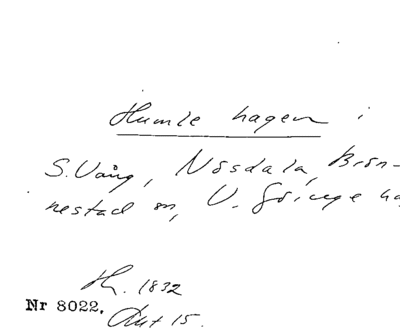 Humle hagen i
S. Vång, Nösdala, Brön-
nestad sn, V. Göinge hd
Hn. 1832
Nr 8022. Akt 15.